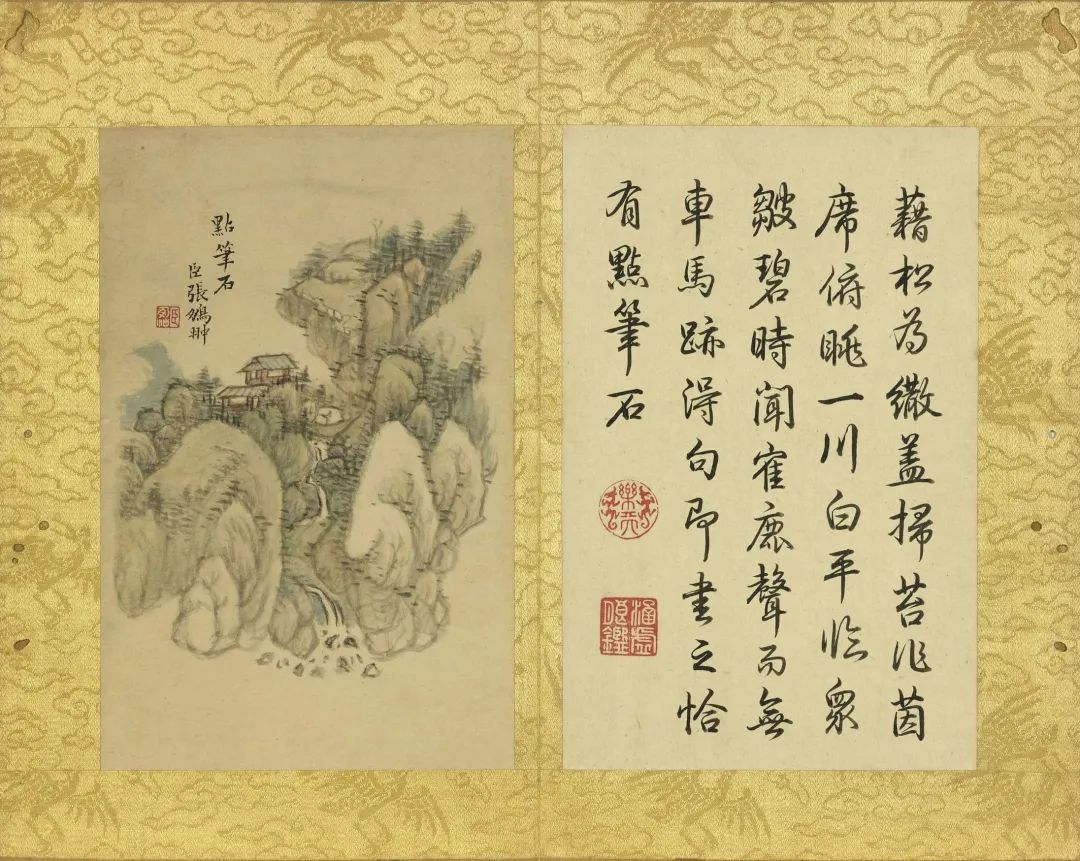 藉松為繖蓋掃苔作茵
席俯眺一川白平臨眾
皺碧時聞寉鹿聲而無
車馬跡得句即書之恰
有點筆石
樂天
涵虛
朗鑑
點筆石
臣張鵬翀